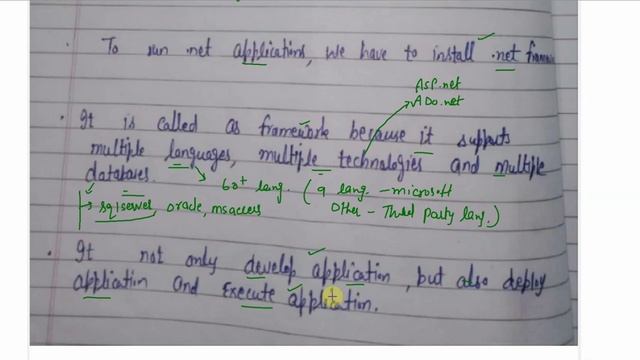 To run .net applications, we have to install .net
ASP.net
ADO.net
It is called as framework because it supports
multiple languages, multiple technologies and multiple
databases.
60+ lang. (9 lang. - microsoft
sqlserver, oracle, msaccess
Other - Third party lang.)
It not only develop application, but also deploy
application and execute application.